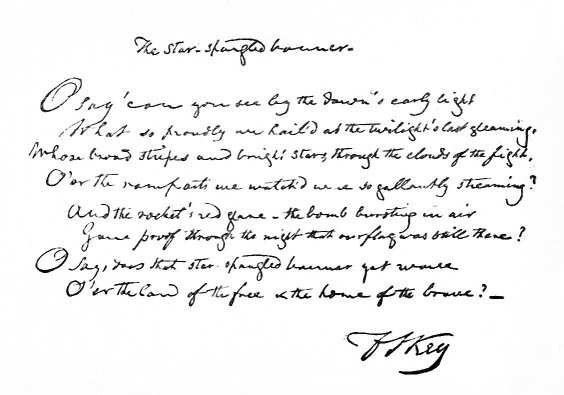 The Star-spangled banner-
O say! can you see by the dawn's early light
What so proudly we hail'd at the twilight's last gleaming,
Whose broad stripes and bright stars, through the clouds of the fight,
O'er the ramparts we watch'd were so gallantly streaming?
And the rocket's red glare - the bomb bursting in air
Gave proof through the night that our flag was still there?
O say, does that star-spangled banner yet wave
O'er the land of the free & the home of the brave? _
F S Key